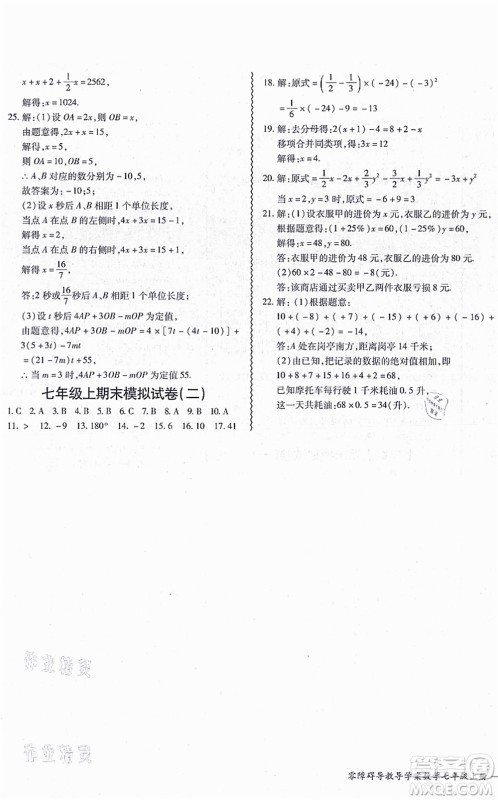 x+x+2+\frac{1}{2}x=2562,
解得:x=1024.
25. 解:(1)设 OA=2x,则 OB=x,
由题意得,2x+x=15,
解得:x=5,
则 OA=10、OB=5,
∴A、B 对应的数分别为-10,5,
故答案为:-10、5;
(2)设 x 秒后 A、B 相距 1 个单位长度,
当点 A 在点 B 的左侧时,4x+3x=15-1,
解得 x=2,
当点 A 在点 B 的右侧时,4x+3x=15+1,
解得 x=\frac{16}{7},
答:2 秒或\frac{16}{7}秒后 A、B 相距 1 个单位长度;
(3)设 t 秒后 4AP+3OB-mOP 为定值,
由题意得,4AP+3OB-mOP=4×[7t-(4t-10)]+
3(5+3t)-7mt
=(21-7m)t+55,
∴当 m=3 时,4AP+3OB-mOP 为定值 55.
七年级上期末模拟试卷(二)
1. C 2. A 3. B 4. C 5. B 6. D 7. A 8. D 9. B 10. A
11. > 12. -9 13. 180° 14. 2 15. 5 16. 9 17. 41
18. 解:原式=(\frac{1}{2}-\frac{1}{3})×(-24)-(-2)²=
\frac{1}{6}×(-24)-4=-8
19. 解:去分母得:2(x-1)+x=10
移项合并同类项得:3x=12
解得:x=4
20. 解:原式=\frac{1}{2}x-2x+\frac{2}{3}y²-\frac{3}{2}x+\frac{1}{3}y²=-3x+y²
当 x=2,y=3 时,原式=-6+9=3
21. 解:(1)设衣服甲的进价为 x 元,衣服乙的进价为 y 元,
根据题意得:(1+25%)x=60,(1-25%)y=60,
解得:x=48,y=80.
答:衣服甲的进价为 48 元,衣服乙的进价为 80 元.
(2)60×2-48-80=-8(元).
答:该商店通过卖甲乙两件衣服亏损了 8 元.
22. 解:(1)根据题意:
10+(-8)+(+7)+(-15)+(+6)+(-16)+
(+4)+(-2)=-14
答:A 处在岗亭南方,距离岗亭 14 千米.
(2)由已知,把记录的数据的绝对值相加,即
10+8+7+15+6+16+4+2=68.
已知摩托车每行驶 1 千米耗油 0.5 升,
这一天共耗油:68×0.5=34(升).
作业精灵
作业精灵
零障碍导教导学案数学七年级上册